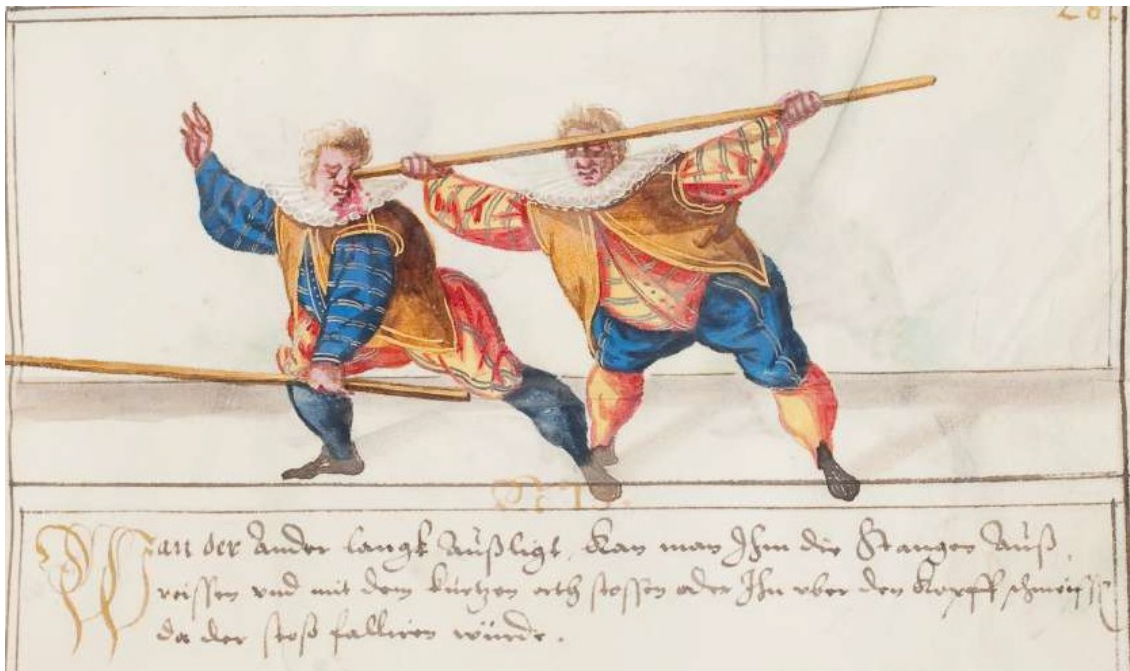 28.
Wan der Ander langk Außligt, Kan man Ihm die Stangen Auß,
reissen vnd mit dem kurtzen orth stossen oder Ihn vber den Kopff schmeissen
da der stoß falliren würde.